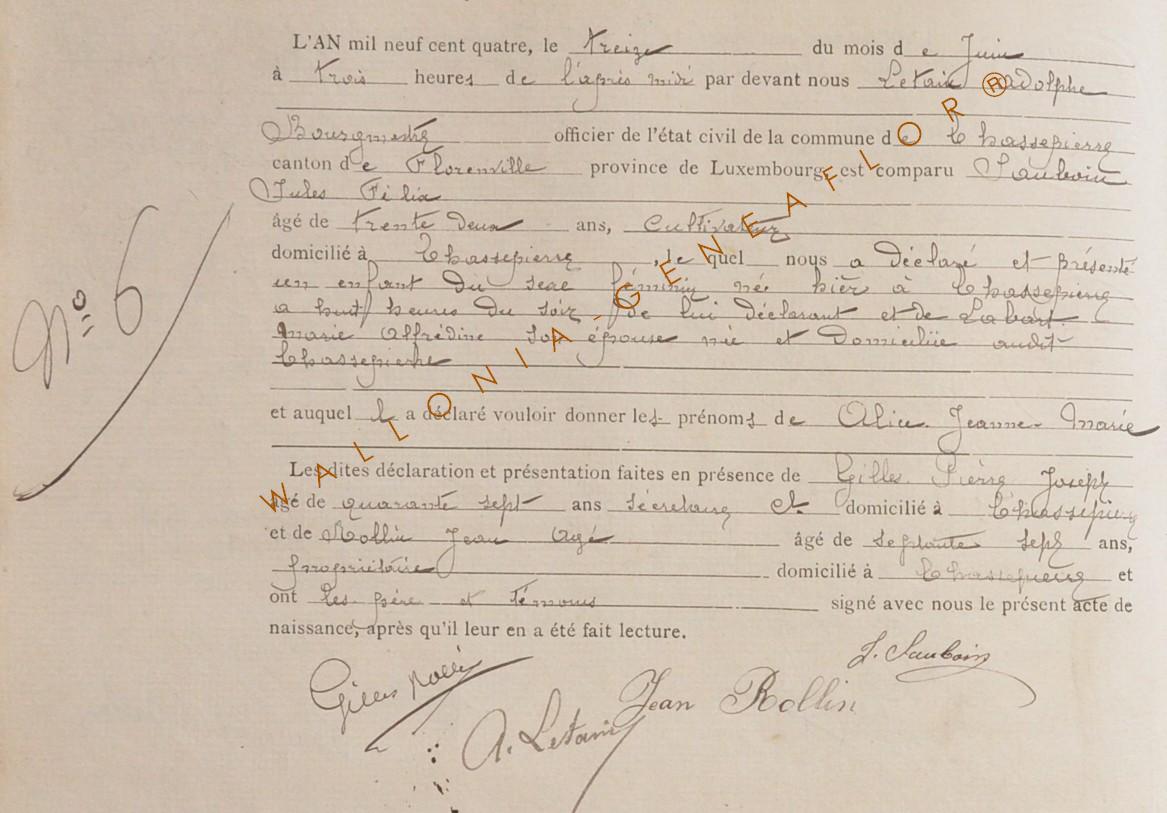 L'AN mil neuf cent quatre, le treize du mois de Juin
à trois heures de l'après midi par devant nous Letain Adolphe
Bourgmestre officier de l'état civil de la commune de Chassepierre
canton de Florenville province de Luxembourg, est comparu Sauboin
Jules Félix
âgé de trente deux ans, Cultivateur
domicilié à Chassepierre, lequel nous a déclaré et présenté
un enfant du sexe féminin né hier à Chassepierre
a huit heures du soir de lui déclarant et de Labart
Marie Alfrédine son épouse née et domiciliée audit
Chassepierre
N° 6
et auquel il a déclaré vouloir donner les prénoms de Alice Jeanne Marie
Les dites déclaration et présentation faites en présence de Gilles Pierre Joseph
âgé de quarante sept ans secrétaire et domicilié à Chassepierre
et de Rollin Jean âgé âgé de septante sept ans,
propriétaire domicilié à Chassepierre et
ont les père et témoins signé avec nous le présent acte de
naissance, après qu'il leur en a été fait lecture.
J. Sauboin
Gilles
Jean Rollin
A. Letain
WALLONIA-GENEAFLOR ®